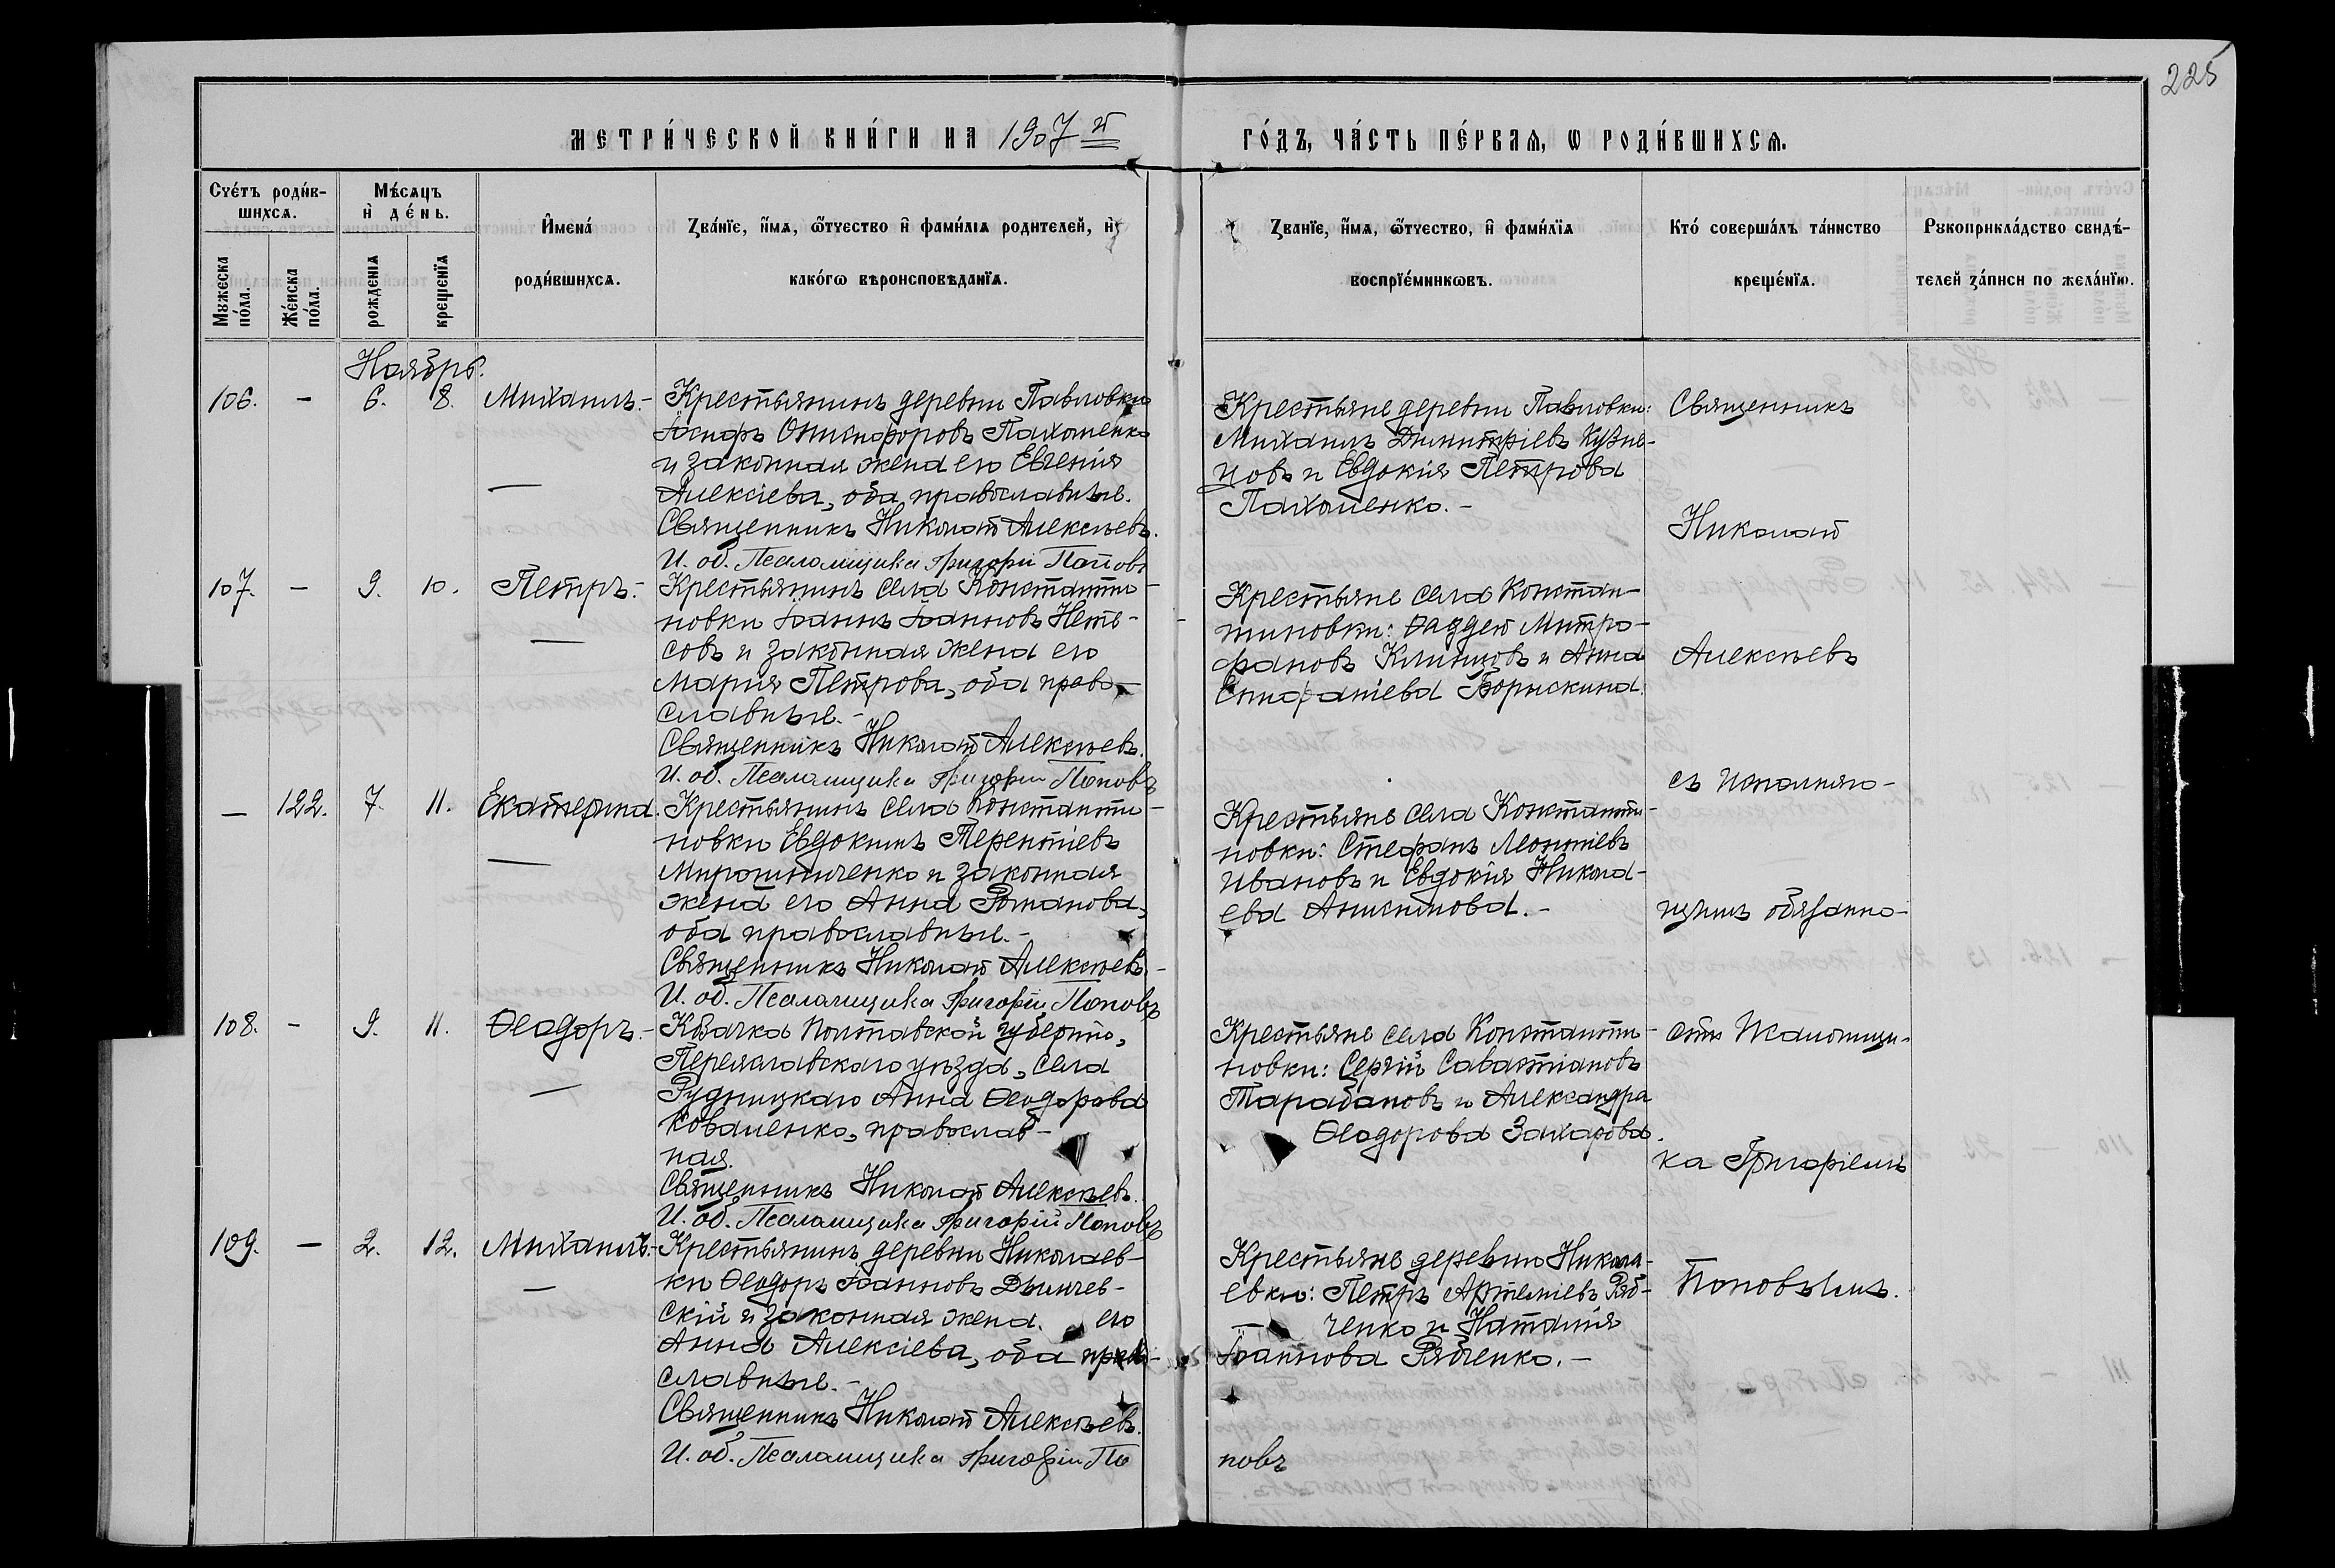 225
МЕТРИ́ЧЕСКОЙ КНИ́ГИ НА 1907 й
ГО́ДЪ, ЧА́СТЬ ПЕ́РВАЯ, Ѡ РОДИ́ВШИХСЯ.
Счéтъ роди́в-
шихсѧ.
Мѣ́сѧцъ
и҆ де́нь.
Мꙋжеска по́ла.
Же́нска по́ла.
рожденїѧ
крещенїѧ
И҆мена́
роди́вшихсѧ.
Ꙁва́нїе, и҆́мѧ, ѻ҆́тчество и҆ фами́лїѧ родителей, и҆
како́гѡ вѣроисповѣданїѧ.
Ꙁванїе, и҆́мѧ, ѻ҆́тчество, и҆ фами́лїѧ
воспрїе́мникѡвъ.
Кто́ соверша́лъ та́инство
креще́нїѧ.
Рꙋкоприкла́дство свидѣ́-
телей ꙁа́писи по жела́нїю.
Ноябрь.
106. - 6. 8. Михаилъ.-
Крестьянинъ деревни Павловки
Іосифъ Онисифоровъ Пахоменко
и законная жена его Евгенія
Алексіева, оба православные.
Священникъ Николай Алексѣевъ.
И. об. Псаломщика Григорій Поповъ
Крестьяне деревни Павловки:
Михаилъ Димитріевъ Кузне-
цовъ и Евдокія Петрова
Пахоменко.-
Священникъ
Николай
107. - 9. 10. Петръ.-
Крестьянинъ села Константи-
новки Іоаннъ Іоанновъ Нете-
совъ и законная жена его
Марія Петрова, оба право-
славные.-
Священникъ Николай Алексѣевъ.
И. об. Псаломщика Григорій Поповъ
Крестьяне села Констан-
тиновки: Ѳаддей Митро-
фановъ Климцовъ и Анна
Епифаніева Борискина.
Алексѣевъ
съ исполняю-
- 122. 7. 11. Екатерина.
Крестьянинъ села Константи-
новки Евдокимъ Терентіевъ
Мирошниченко и законная
жена его Анна Романова,
оба православные.-
Священникъ Николай Алексѣевъ.-
И. об. Псаломщика Григорій Поповъ
Крестьяне села Константи-
новки: Стефанъ Леонтіевъ
Ивановъ и Евдокія Никола-
ева Анисимова.-
щимъ обязанно-
108. - 9. 11. Ѳеодоръ.-
Козачка Полтавской губерніи,
Переяславскаго уѣзда, села
Рудницкаго Анна Ѳеодорова
Коваленко, православ-
ная.
Священникъ Николай Алексѣевъ.
И. об. Псаломщика Григорій Поповъ
Крестьяне села Константи-
новки: Сергій Савастіановъ
Тарабановъ и Александра
Ѳеодорова Захарова.
сть Псаломщи-
ка Григоріемъ
109. - 2. 12. Михаилъ.-
Крестьянинъ деревни Николаев-
ки Ѳеодоръ Іоанновъ
скій и законная жена его
Анна Алексіева, оба право-
славные.-
Священникъ Николай Алексѣевъ.
И. об. Псаломщика Григорій По
Крестьяне деревни Никола-
евки: Петръ Артеміевъ Ряб-
ченко и Наталія
Іоаннова Рябченко.-
новъ
Поповымъ.